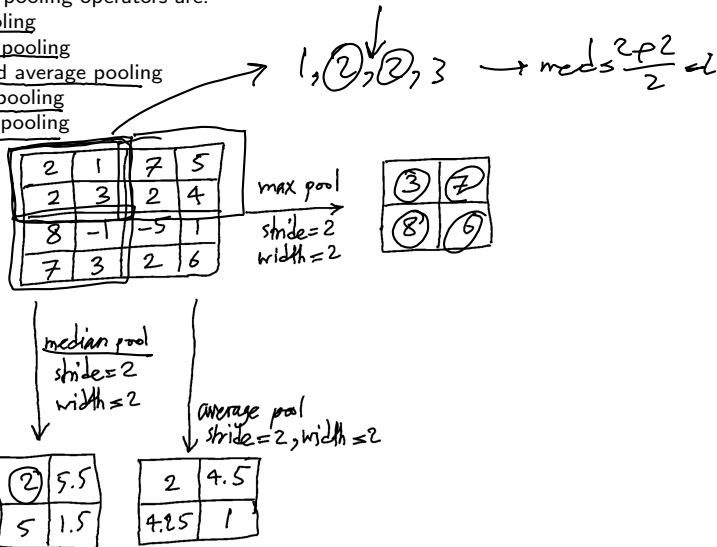 pooling operators are:
ling
pooling
d average pooling
pooling
pooling
1, 2, 2, 3 → med = 2+2/2 = 2
2 1 7 5
2 3 2 4
8 -1 -5 1
7 3 2 6
max pool
stride=2
width=2
3 7
8 6
median pool
stride=2
width=2
average pool
stride=2, width=2
2 5.5
5 1.5
2 4.5
4.25 1